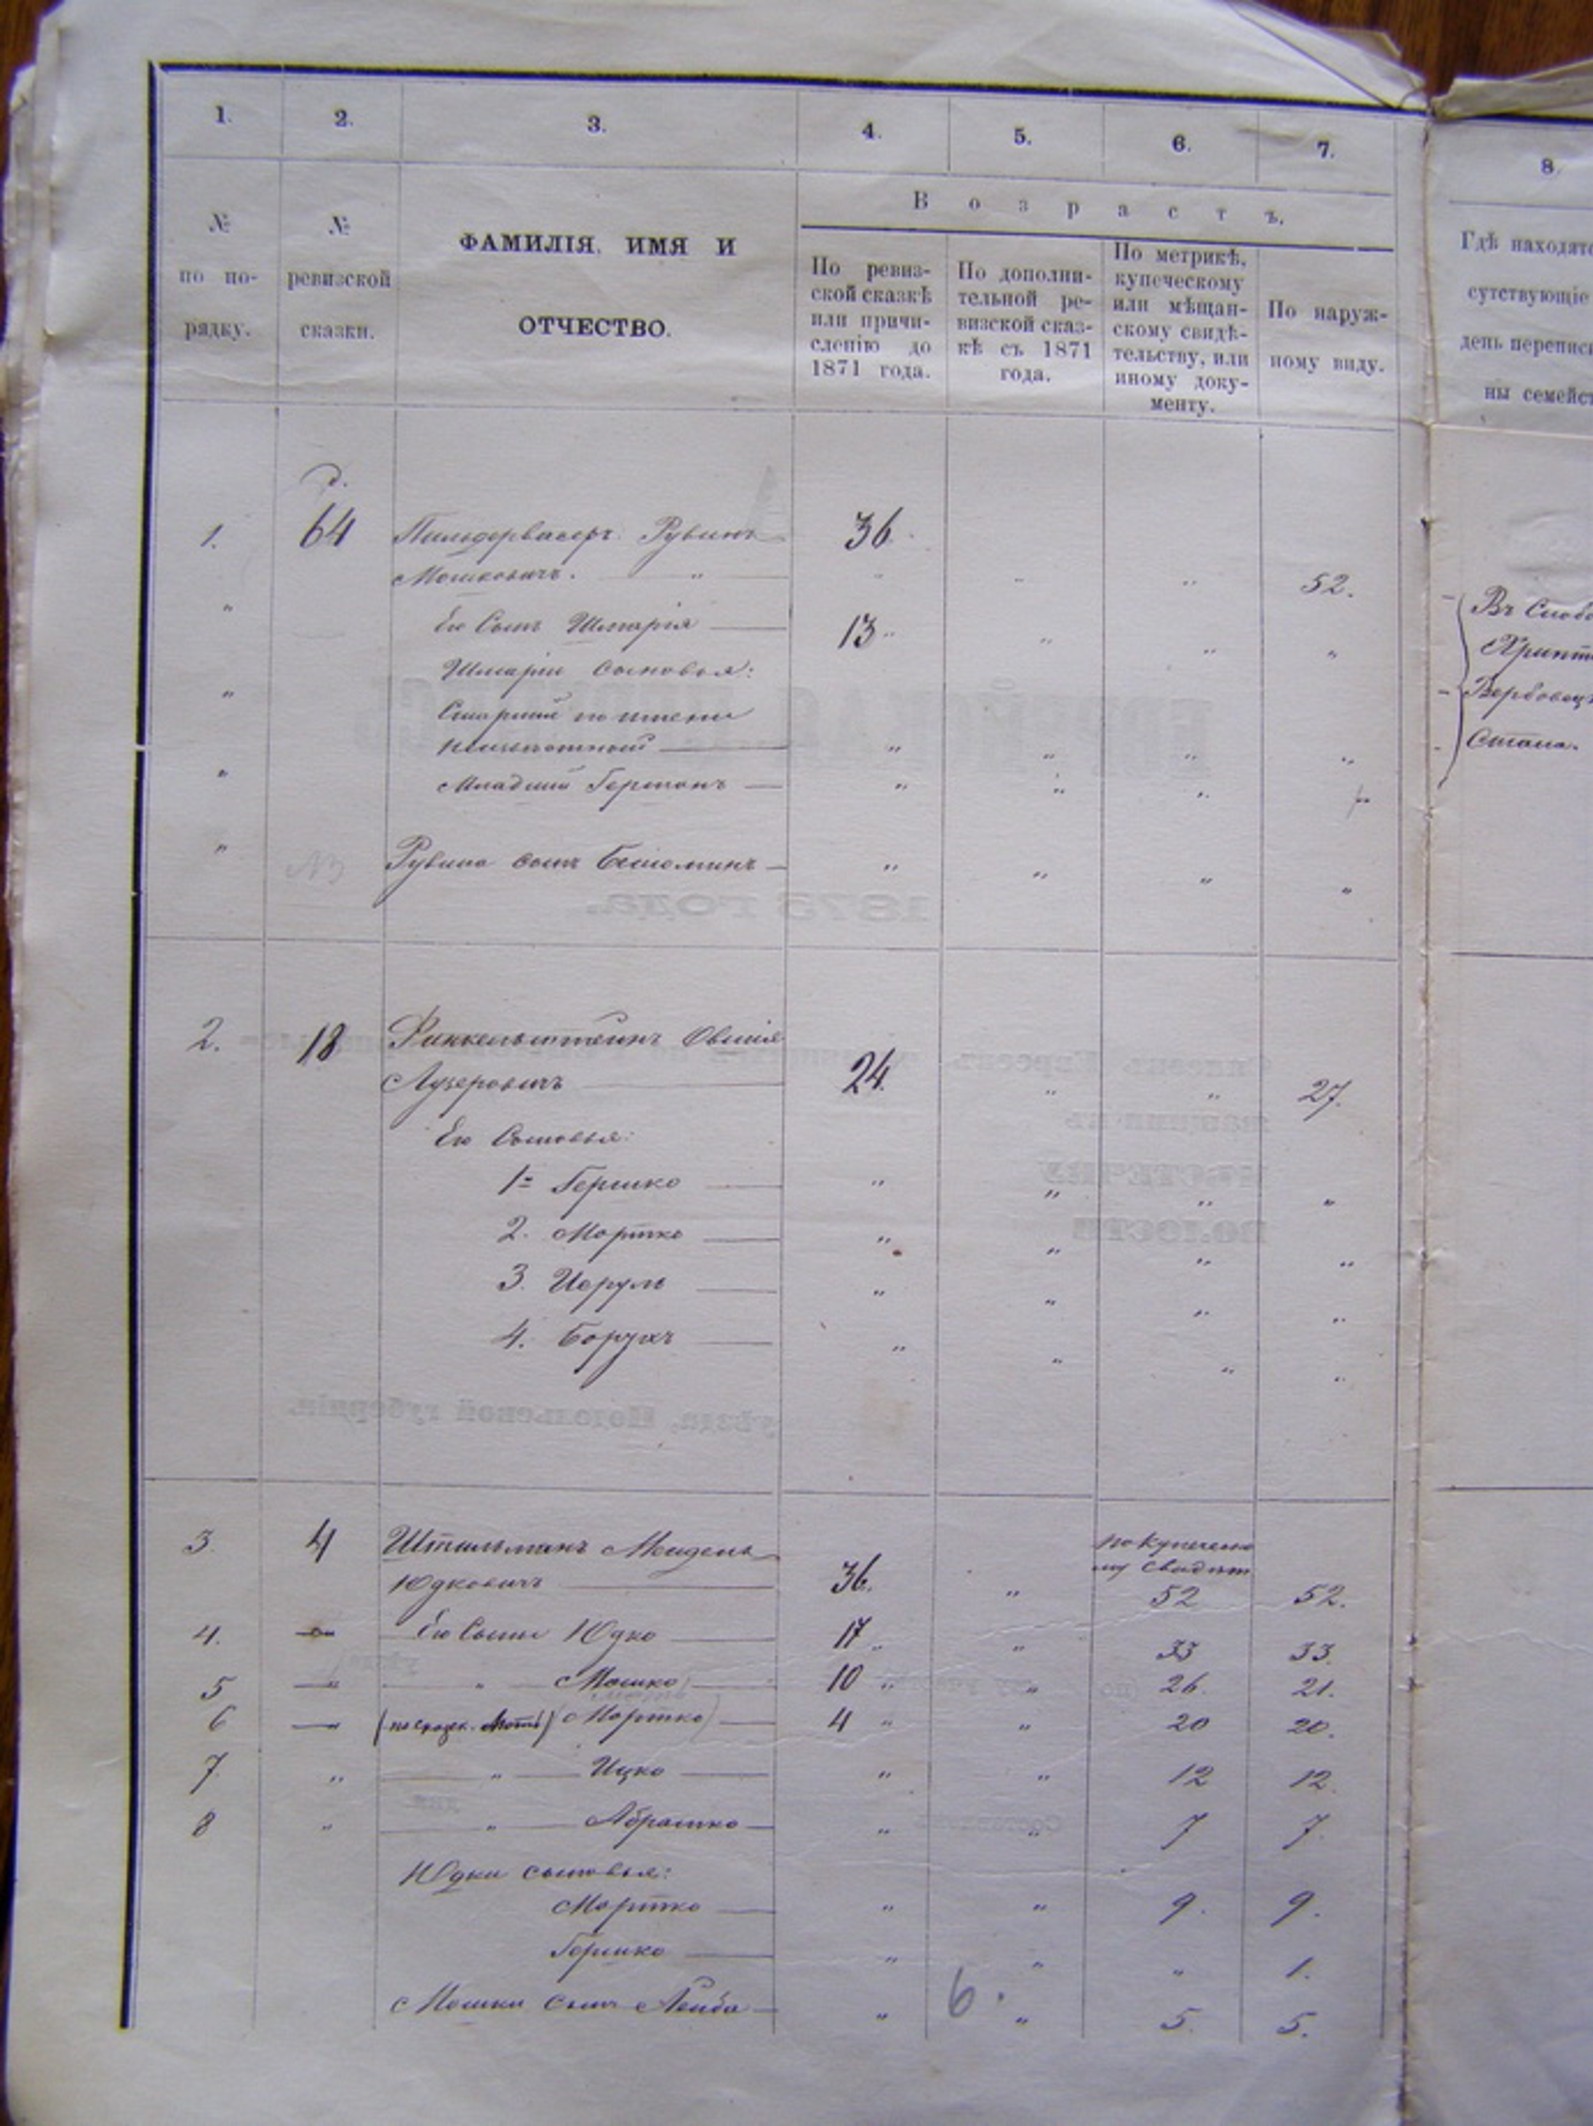 1. 2. 3. 4. 5. 6. 7. 8.
В о з р а с т ъ.
№ по по-рядку.
№ ревизской сказки.
ФАМИЛІЯ, ИМЯ И
ОТЧЕСТВО.
По ревиз-
ской сказкѣ
или причи-
сленію до
1871 года.
По дополни-
тельной ре-
визской сказ-
кѣ съ 1871
года.
По метрикѣ,
купеческому
или мѣщан-
скому свидѣ-
тельству, или
иному доку-
менту.
По наруж-
ному виду.
Гдѣ находятс
сутствующіе
день переписи
ны семейст
1. 64 Пильдервасеръ Рувинъ 36
Мошковичъ. " " " " 52.
" Его Сынъ Шмарія 13 " " " "
Шмаріи сыновья:
" Старшій по имени
неизвѣстный " " " "
" Младшій Гершонъ " " " "
" Рувина сынъ Беніоминъ " " " "
Въ Слобо
Хринт
Вербовец
Стана.
2. 18 Финкельштейнъ Овшія
Лузеровичъ 24. " " 27.
Его Сыновья:
1= Гершко " " " "
2. Мортко " " " "
3. Исруль " " " "
4. Борухъ " " " "
3. 4 Штильманъ Мендель по купеческо
му свидѣт
Юдковичъ 36. " 52 52.
4. Его Сыны Юдко 17 " " 33 33.
5 " " Мошко 10 " " 26. 21.
6 " Мортко 4 " " 20 20.
7 " " Ицко " " 12 12.
8 " " Абрашко " " 7 7.
Юдки сыновья:
Мортко " " 9. 9.
Гершко " " " 1.
Мошки сынъ Лейба " " 5. 5.
6.